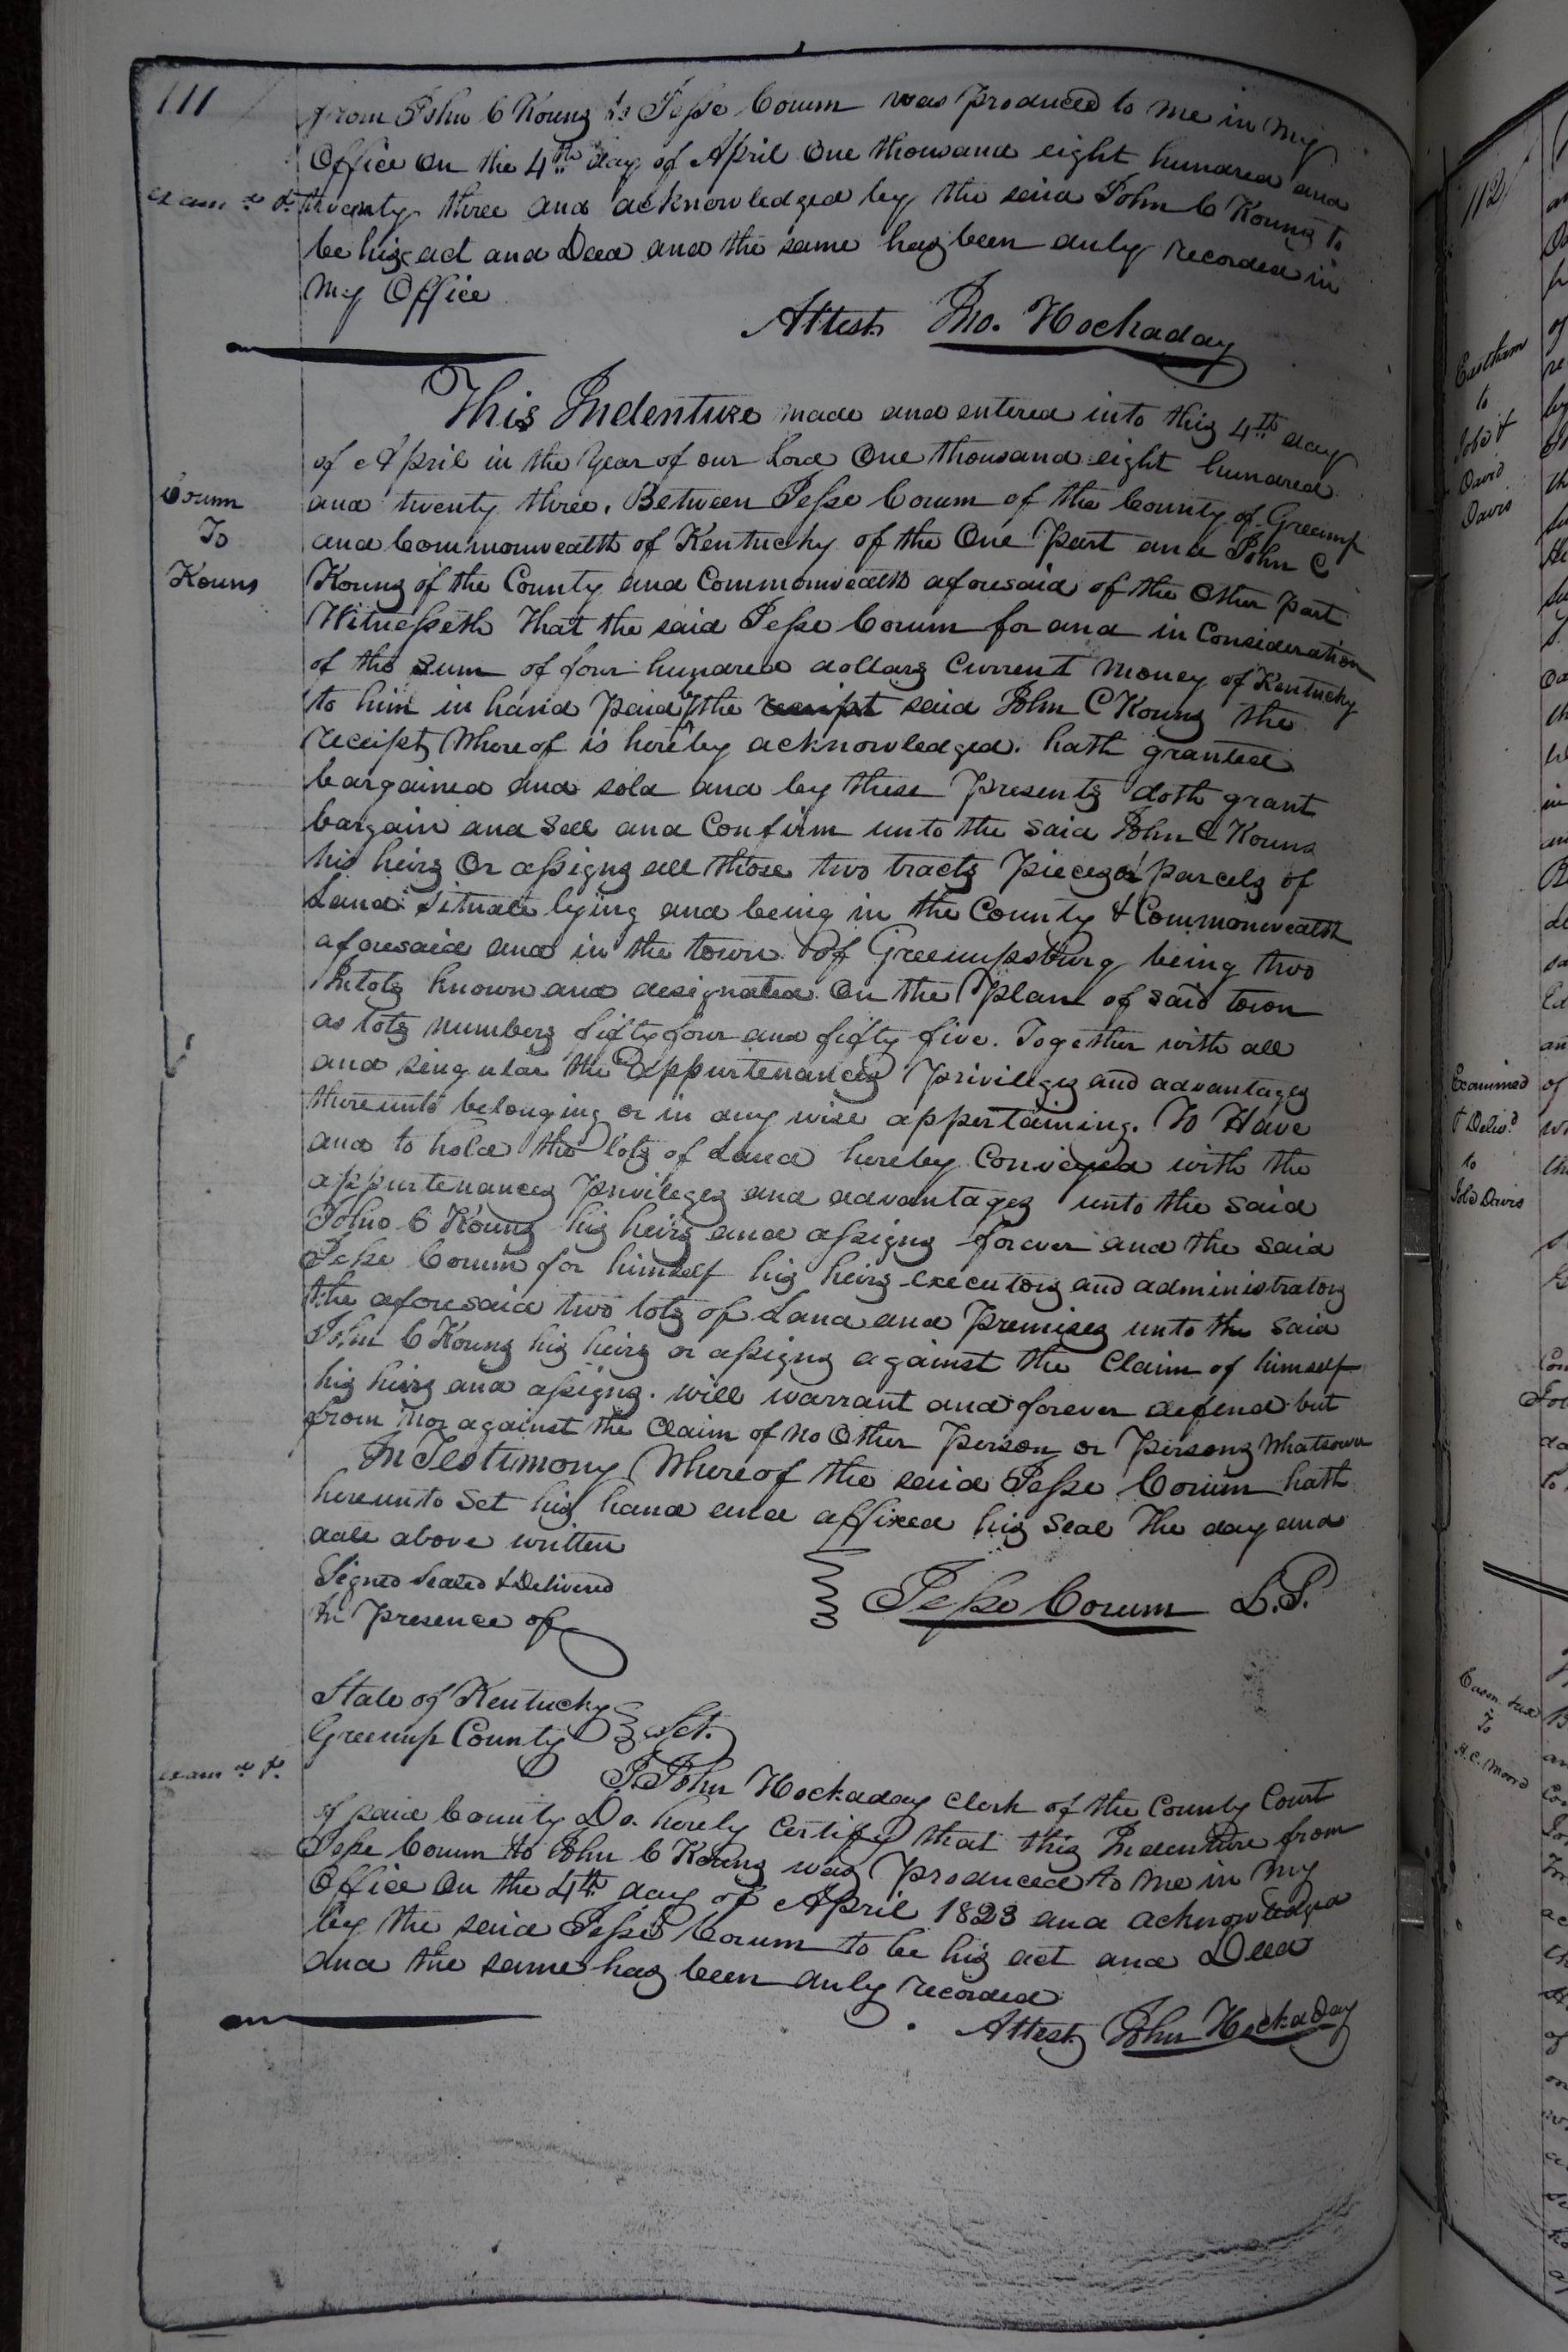 111
from John C Kouns to Jesse Corum was produced to me in my
Office On the 4th day of April One thousand eight hundred and
twenty three and acknowledged by the said John C Kouns to
be his act and Deed and the same has been duly recorded in
My Office
Attest Jno. Hockaday
This Indenture made and entered into this 4th day
of April in the Year of our Lord One thousand eight hundred
and twenty three. Between Jesse Corum of the County of Greenup
and Commonwealth of Kentucky of the One Part and John C
Kouns of the County and Commonwealth aforesaid of the Other Part
Witnesseth That the said Jesse Corum for and in Consideration
of the Sum of four hundred dollars Current Money of Kentucky
to him in hand paid by the receipt said John C Kouns the
receipt Whereof is hereby acknowledged. hath granted
bargained and sold and by these Presents doth grant
bargain and Sell and Confirm unto the said John C Kouns
his heirs Or assigns all those two tracts Pieces or parcels of
Land Situate lying and being in the County & Commonwealth
aforesaid and in the town of Greenupsburg being two
Inlots known and designated On the Plan of said town
as lots numbers fifty four and fifty five. Together with all
and singular the appurtenances Privileges and advantages
thereunto belonging or in any wise appertaining. To Have
and to hold the lots of Land hereby Conveyed with the
appurtenances Privileges and advantages unto the said
John C Kouns his heirs and assigns forever and the said
Jesse Corum for himself his heirs executors and administrators
the aforesaid two lots of Land and Premises unto the said
John C Kouns his heirs or assigns against the Claim of himself
his heirs and assigns. will warrant and forever defend but
from nor against the Claim of no Other Person or Persons Whatsoever
In Testimony Whereof the said Jesse Corum hath
hereunto Set his hand and affixed his Seal The day and
date above written
Signed Sealed & Delivered
In Presence of
Jesse Corum L.S.
State of Kentucky
Greenup County Sct.
I John Hockaday Clerk of the County Court
of said County Do hereby Certify that this Indenture from
Jesse Corum to John C Kouns was Produced to Me in My
Office On the 4th day of April 1823 and acknowledged
by the said Jesse Corum to be his act and Deed
and the same has been duly recorded
Attest John Hockaday
Corum
To
Kouns
112
Eastham
to
David
Davis
Examined
& Deliv.d
to
Davis
To
H.C. Moore